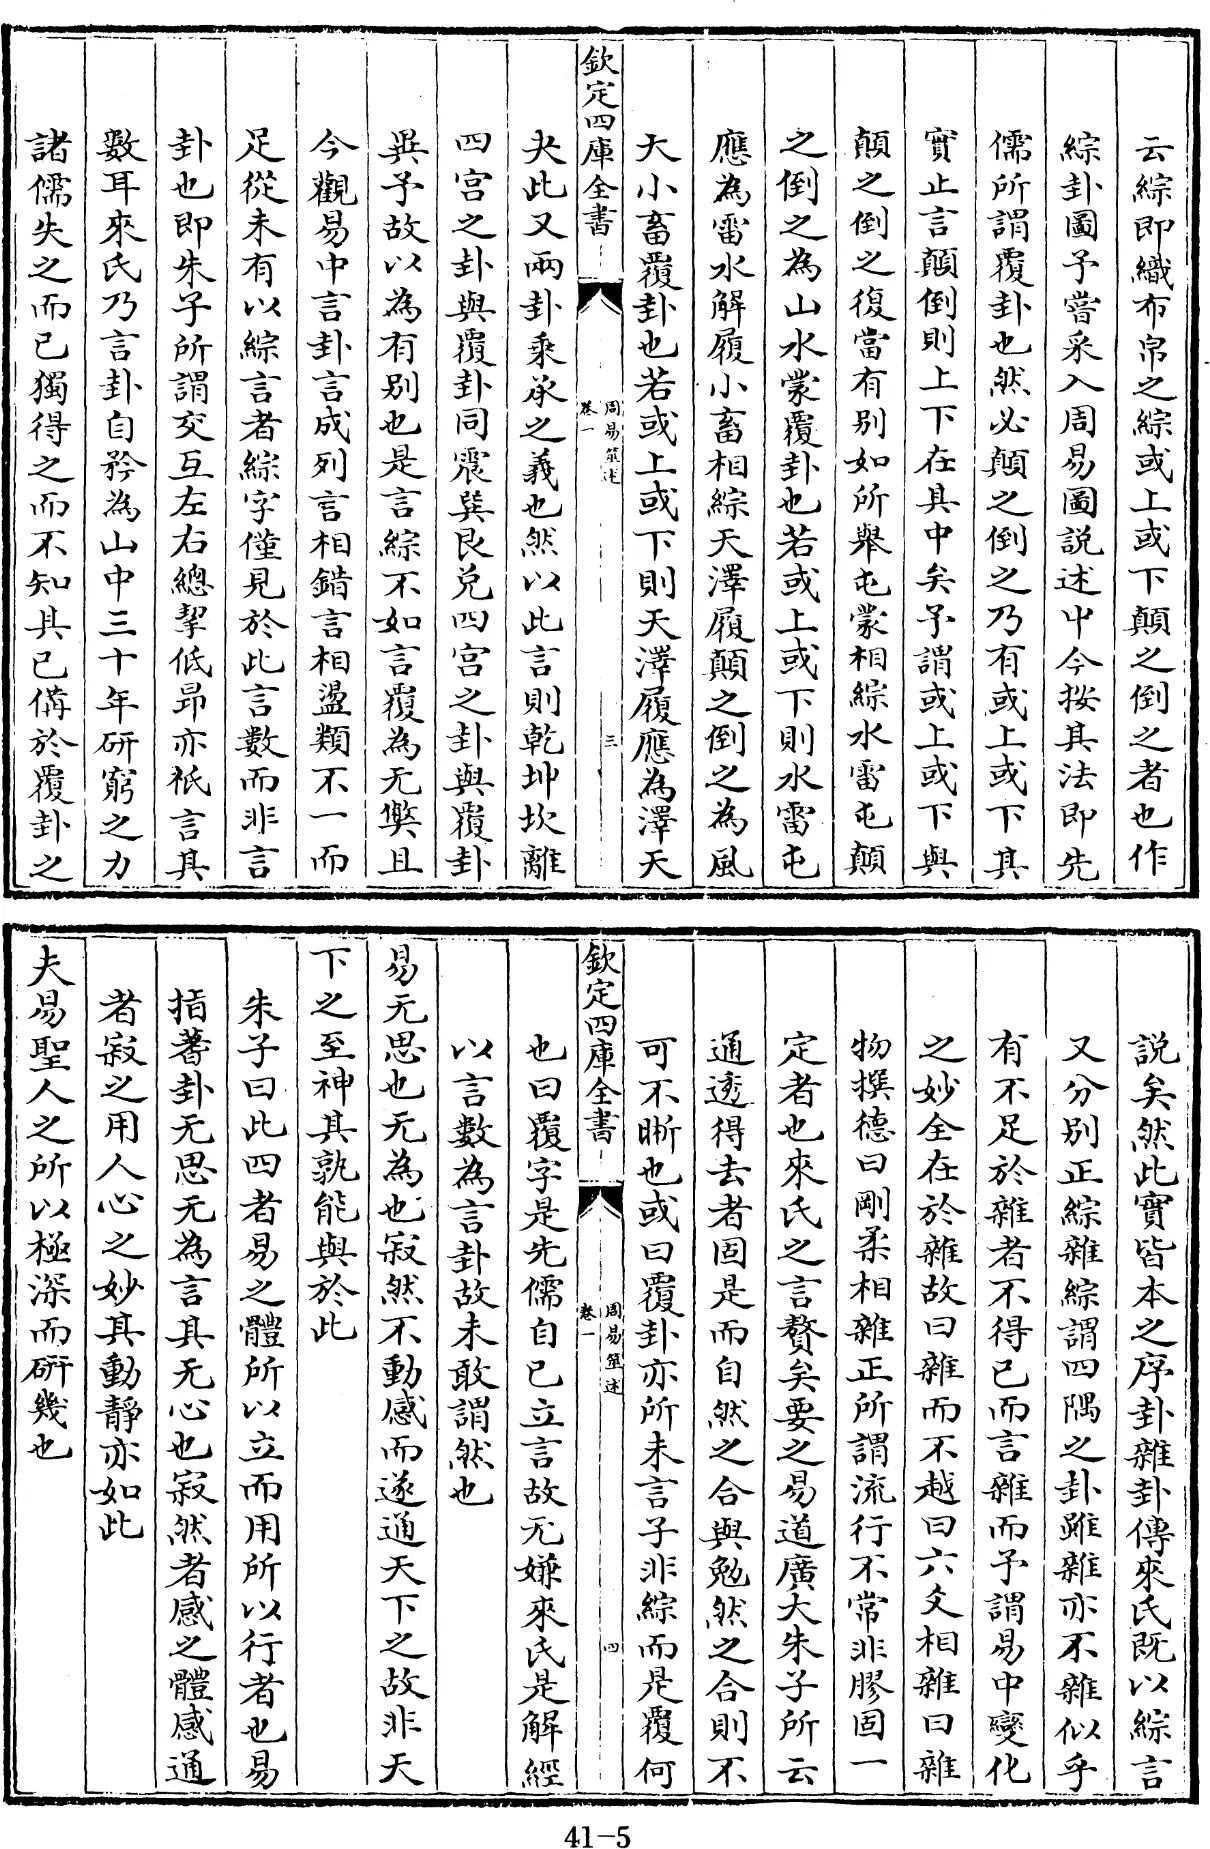 云綜即織布帛之綜或上或下顛之倒之者也作
綜卦圖予嘗采入周易圖說述中今按其法即先
儒所謂覆卦也然必顛之倒之乃有或上或下其
實止言顛倒則上下在其中矣予謂或上或下與
顛之倒之復當有别如所舉屯蒙相綜水雷屯顛
之倒之為山水蒙覆卦也若或上或下則水雷屯
應為雷水解履小畜相綜天澤履顛之倒之為風
天小畜覆卦也若或上或下則天澤履應為澤天
欽定四庫全書
周易筮述
卷一
三
夬此又兩卦乘承之義也然以此言則乾坤坎離
四宫之卦與覆卦同震巽艮兑四宫之卦與覆卦
異予故以為有别也是言綜不如言覆為无獘且
今觀易中言卦言成列言相錯言相盪類不一而
足從未有以綜言者綜字僅見於此言數而非言
卦也即朱子所謂交互左右總挈低昂亦祇言其
數耳來氏乃言卦自矜為山中三十年研窮之力
諸儒失之而已獨得之而不知其已備於覆卦之
說矣然此實皆本之序卦雜卦傳來氏既以綜言
又分别正綜雜綜謂四隅之卦雖雜亦不雜似乎
有不足於雜者不得已而言雜而予謂易中變化
之妙全在於雜故曰雜而不越曰六爻相雜曰雜
物撰德曰剛柔相雜正所謂流行不常非膠固一
定者也來氏之言贅矣要之易道廣大朱子所云
通透得去者固是而自然之合與勉然之合則不
可不晰也或曰覆卦亦所未言子非綜而是覆何
欽定四庫全書
周易筮述
卷一
四
也曰覆字是先儒自已立言故无嫌來氏是解經
以言數為言卦故未敢謂然也
易无思也无為也寂然不動感而遂通天下之故非天
下之至神其孰能與於此
朱子曰此四者易之體所以立而用所以行者也易
指蓍卦无思无為言其无心也寂然者感之體感通
者寂之用人心之妙其動靜亦如此
夫易聖人之所以極深而研幾也
41-5